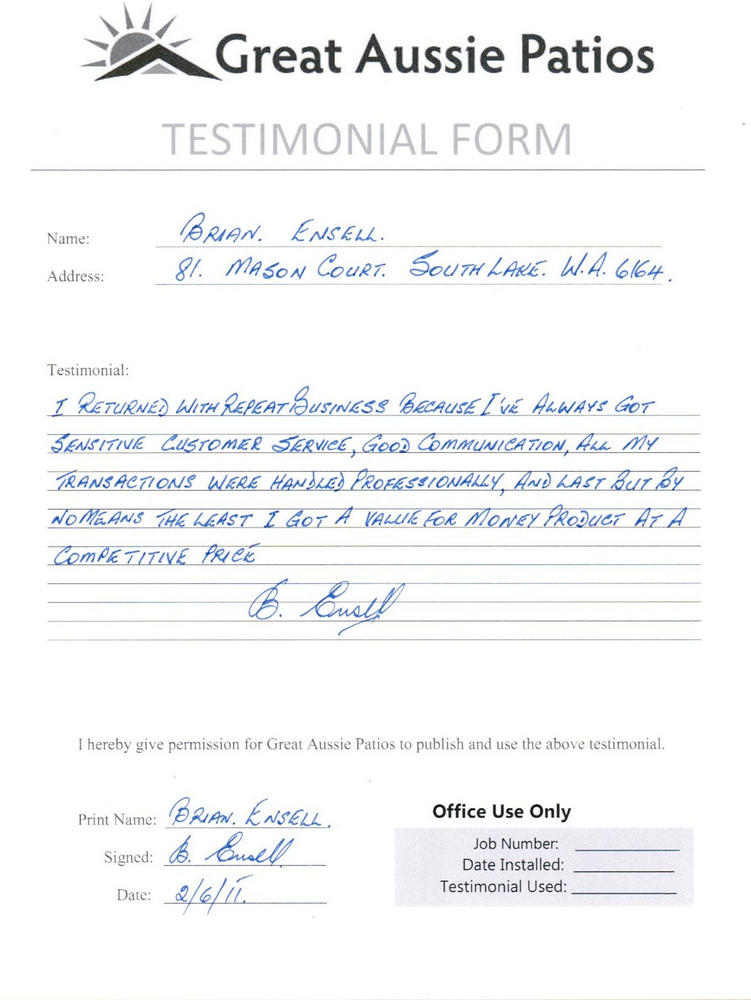 Great Aussie Patios
TESTIMONIAL FORM
Name: BRIAN. ENSELL.
Address: 81. MASON COURT. SOUTH LAKE. W.A. 6164.
Testimonial:
I RETURNED WITH REPEAT BUSINESS BECAUSE I'VE ALWAYS GOT
SENSITIVE CUSTOMER SERVICE, GOOD COMMUNICATION, ALL MY
TRANSACTIONS WERE HANDLED PROFESSIONALLY, AND LAST BUT BY
NO MEANS THE LEAST I GOT A VALUE FOR MONEY PRODUCT AT A
COMPETITIVE PRICE
B. Ensell
I hereby give permission for Great Aussie Patios to publish and use the above testimonial.
Print Name: BRIAN. ENSELL.
Signed: B. Ensell
Date: 2/6/11.
Office Use Only
Job Number:
Date Installed:
Testimonial Used: